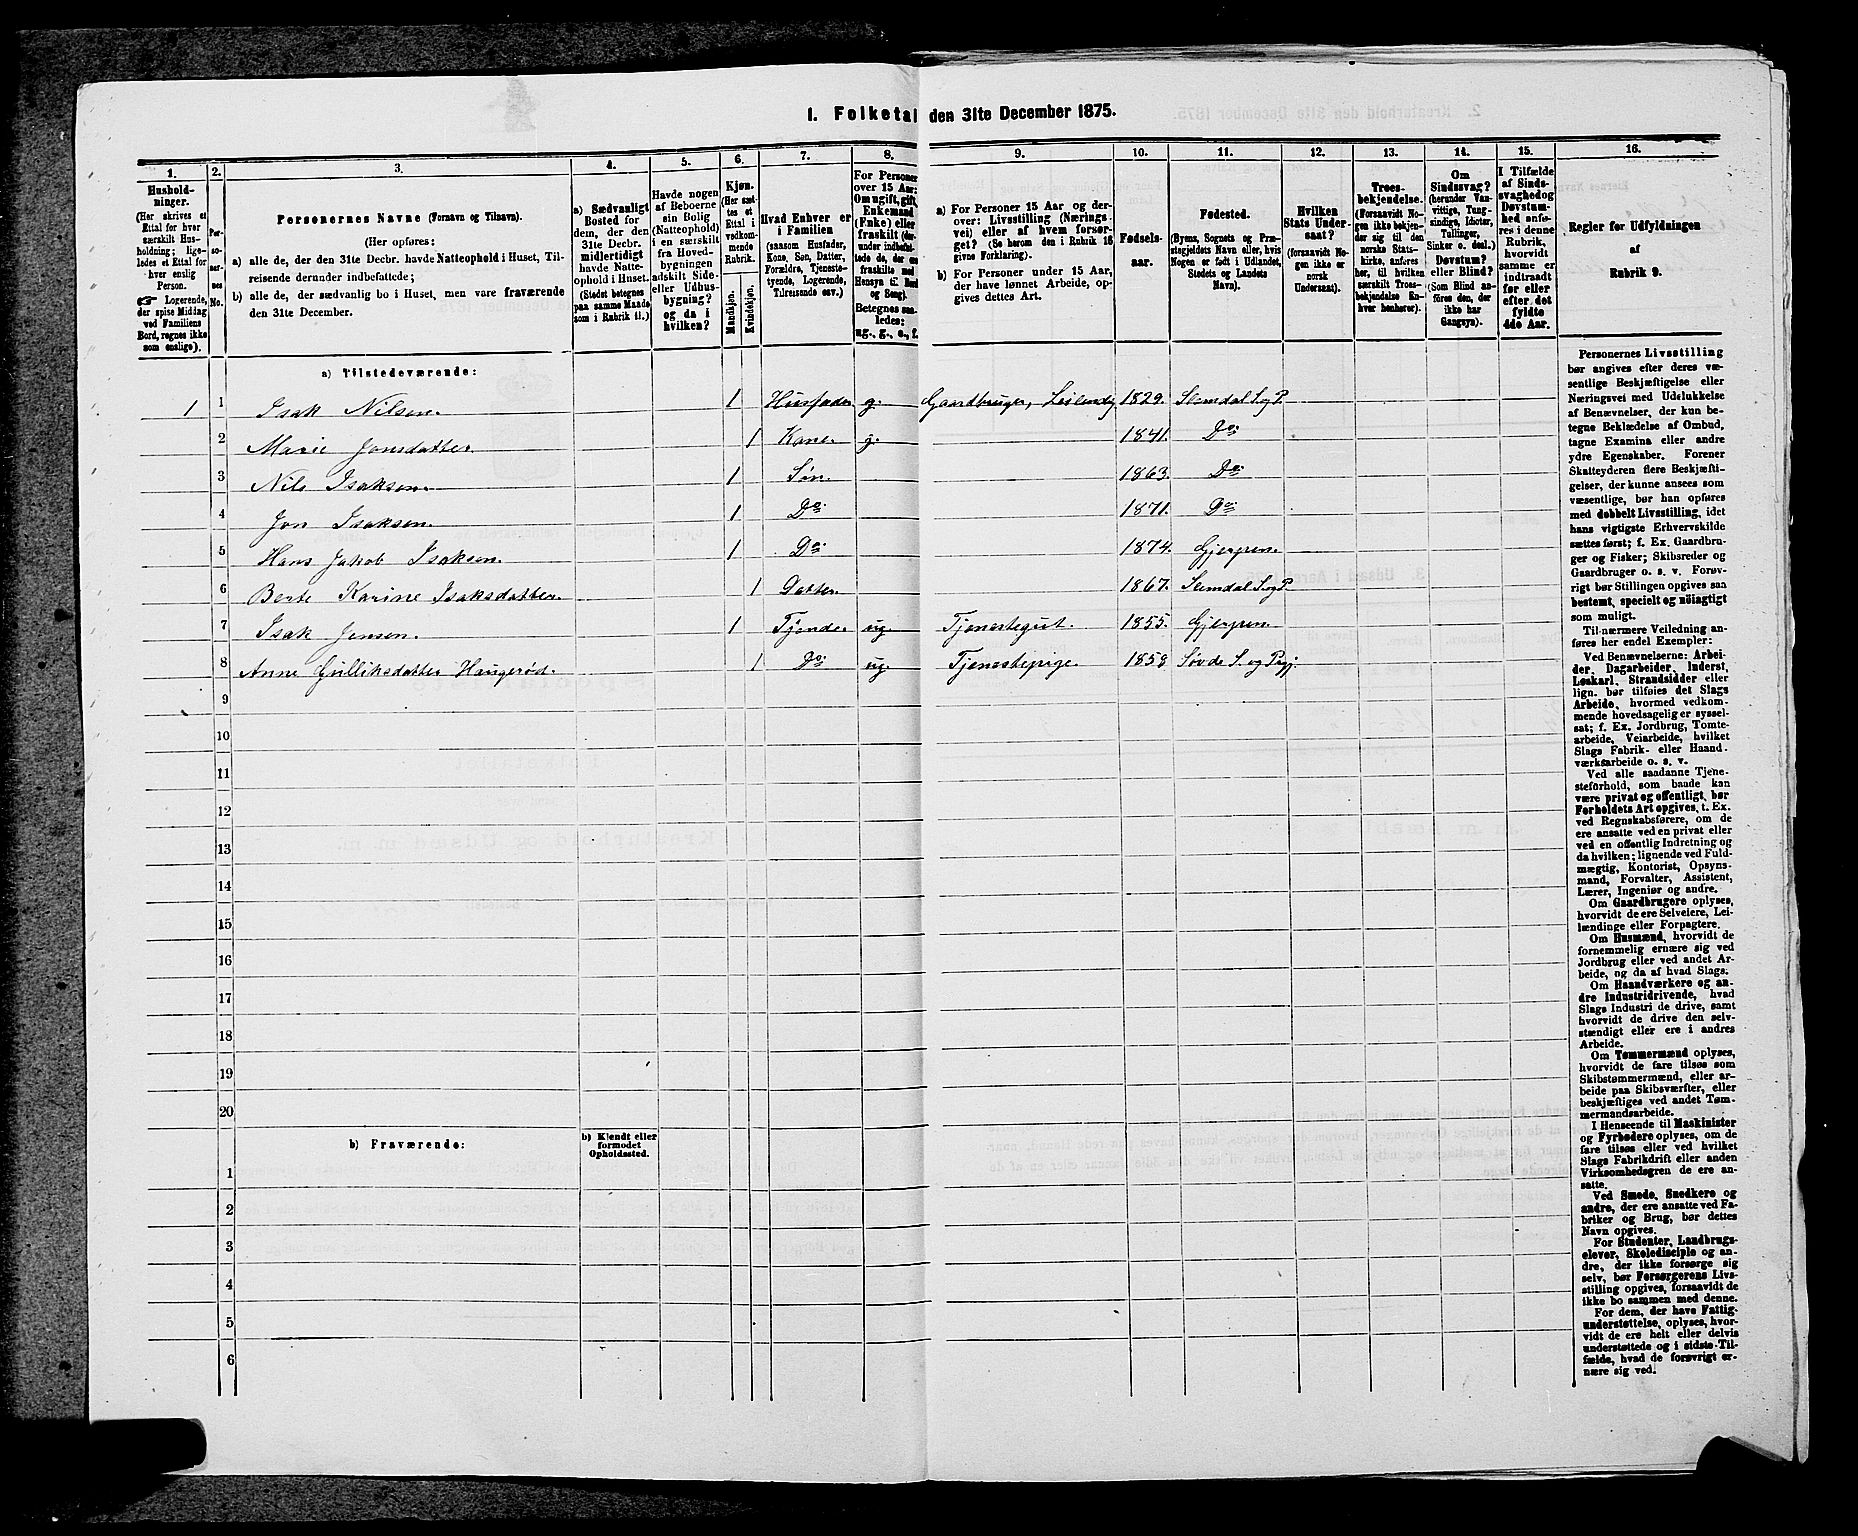 1. Folketal den 31te December 1875.
1. 2. 3. 4. 5. 6. 7. 8. 9. 10. 11. 12. 13. 14. 15. 16.
Hushold-
ninger.
(Her skrives et
Ettal for hver
særskilt Hus-
holdning; lige-
ledes et Ettal for
hver enslig
Person.
☞ Logerende,
der spise Middag
ved Familiens
Bord, regnes ikke
som enslige).
Personernes No.
Personernes Navne (Fornavn og Tilnavn).
(Her opføres:
a) alle de, der den 31te Decbr. havde Natteophold i Huset, Til-
reisende derunder indbefattede;
b) alle de, der sædvanlig bo i Huset, men vare fraværende
den 31te December.
a) Sædvanligt
Bosted for
dem, der den
31te Decbr.
midlertidigt
havde Natte-
ophold i Huset.
(Stedet betegnes
paa samme Maade
som i Rubrik 11.)
Havde nogen
af Beboerne
sin Bolig
(Natteophold)
i en særskilt
fra Hoved-
bygningen
adskilt Side-
eller Udhus-
bygning?
og da i
hvilken?
Kjøn.
(Her sæt-
tes et
Ettal i
vedkom-
mende
Rubrik.
Mandkjøn.
Kvindekjøn.
Hvad Enhver er
i Familien
(saasom Husfader,
Kone, Søn, Datter,
Forældre, Tjeneste-
tyende, Logerende,
Tilreisende osv.)
For Personer
over 15 Aar:
Om ugift, gift,
Enkemand
(Enke) eller
fraskilt
Betegnes saa-
ledes:
ug., g., e., f.
a) For Personer 15 Aar og der-
over: Livsstilling (Nærings-
vei) eller af hvem forsør-
get? (Se herom den i Rubrik 16
givne Forklaring).
b) For Personer under 15 Aar,
der have lønnet Arbeide, op-
gives dettes Art.
Fødsels-
aar.
Fødested.
(Byens, Sognets og Præ-
stegjeldets Navn eller, hvis
Nogen er født i Udlandet,
Stedets og Landets
Navn).
Hvilken
Stats Under-
saat?
(forsaavidt No-
gen ikke er
norsk
Undersaat).
Troes-
bekjendelse.
(Forsaavidt No-
gen ikke bekjen-
der sig til den
norske Stats-
kirke, anføres
her, til hvilken
særskilt Troes-
bekjendelse En-
hver henhører).
Om
Sindssvag?
(herunder Van-
vittige, Tung-
sindige, Idioter,
Tullinger,
Sinker o. desl.)
Døvstum?
eller Blind?
(Som Blind an-
føres den, der
ikke har
Gangsyn).
I Tilfælde
af Sinds-
svaghed og
Døvstum-
hed anfø-
res i denne
Rubrik,
hvorvidt
samme er
indtraadt
før eller
efter det
fyldte
4de Aar.
Regler for Udfyldningen
af
Rubrik 9.
a) Tilstedeværende:
1 1 Isak Nilsen. 1 Husfader g. Gaardbruger, Leilendig 1829. Slemdal S og P
2 Marie Jonsdatter 1 Kone. g. 1841. Do
3 Nils Isaksen. 1 Søn. 1863. Do
4 Jon Isaksen. 1 Do 1871. Do
5 Hans Jakob Isaksen. 1 Do 1874. Gjerpen.
6 Berte Karine Isaksdatter. 1 Datter. 1867. Slemdal S og P.
7 Isak Jensen. 1 Tjende. ug. Tjenestegut. 1855. Gjerpen.
8 Anne Gulliksdatter Haugerød. 1 Do ug. Tjenestepige. 1858 Søvde S. og Prgj.
9
10
11
12
13
14
15
16
17
18
19
20
b) Fraværende: b) Kjendt eller
formodet
Opholdssted.
1
2
3
4
5
6
Personernes Livsstilling
bør angives efter deres væ-
sentlige Beskjæftigelse eller
Næringsvei med Udelukkelse
af Benævnelser, der kun be-
tegne Beklædelse af Ombud,
tagne Examina eller andre
ydre Egenskaber. Forener
Skatteyderen flere Beskjæfti-
gelser, der kunne ansees som
væsentlige, bør han opføres
med dobbelt Livsstilling, idet
hans vigtigste Erhvervskilde
sættes først; f. Ex. Gaardbru-
ger og Fisker; Skibsreder og
Gaardbruger o. s. v. Forøv-
rigt bør Stillingen opgives saa
bestemt, specielt og nöiagtigt
som muligt.
Til nærmere Veiledning an-
føres her endel Exempler:
Ved Benævnelserne: Arbei-
der, Dagarbeider, Inderst,
Løskarl, Strandsidder eller
lign. bør tilføies det Slags
Arbeide, hvormed vedkom-
mende hovedsagelig er syssel-
sat; f. Ex. Jordbrug, Tomte-
arbeide, Veiarbeide, hvilket
Slags Fabrik- eller Haand-
værksarbeide o. s. v.
Ved alle saadanne Tjene-
steforhold, som baade kan
være privat og offentligt, bør
Forholdets Art opgives, t. Ex.
ved Regnskabsførere, om de
ere ansatte ved en privat eller
ved en offentlig Indretning og
da hvilken; lignende ved Fuld-
mægtig, Kontorist, Opsyns-
mand, Forvalter, Assistent,
Lærer, Ingeniør og andre.
Om Gaardbrugere oplyses,
hvorvidt de ere Selveiere, Lei-
lændinge eller Forpagtere.
Om Husmænd, hvorvidt de
fornemmelig ernære sig ved
Jordbrug eller ved andet Ar-
beide, og da af hvad Slags.
Om Haandværkere og an-
dre Industridrivende, hvad
Slags Industri de drive, samt
hvorvidt de drive den selv-
stændigt eller ere i andres
Arbeide.
Om Tømmermænd oplyses,
hvorvidt de fare tilsøs som
Skibstømmermænd, eller ar-
beide paa Skibsværfter, eller
beskjæftiges ved andet Tøm-
mermandsarbeide.
I Henseende til Maskinister
og Fyrbødere oplyses, om de
fare tilsøs eller ved hvilket
Slags Fabrikdrift eller anden
Virksomhedsgren de ere an-
satte.
Ved Smede, Snedkere og
andre, der ere ansatte ved Fa-
briker og Brug, bør dettes
Navn opgives.
For Studenter, Landbrugs-
elever, Skoledisciple og an-
dre, der ikke forsørge sig
selv, bør Forsørgerens Livs-
stilling opgives, forsaavidt de
ikke bo sammen med denne.
For dem, der have Fattig-
understøttelse, oplyses, hvor-
vidt de ere helt eller delvis
understøttede og i sidste Til-
fælde, hvad de forøvrigt er-
nære sig ved.